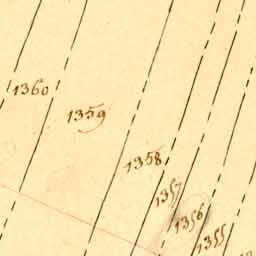 1360
1359
1358
1357
1356
1355